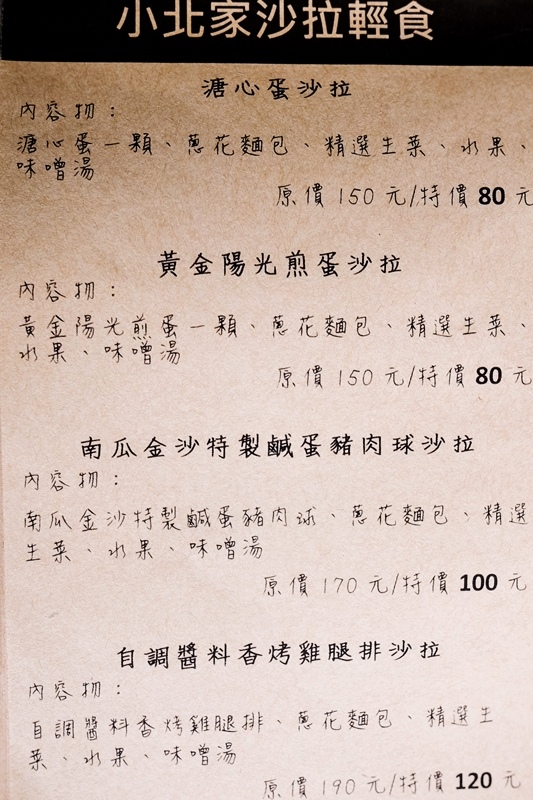 小北家沙拉輕食
溏心蛋沙拉
內容物：
溏心蛋一顆、蔥花麵包、精選生菜、水果、
味噌湯
原價150元/特價80元
黃金陽光煎蛋沙拉
內容物：
黃金陽光煎蛋一顆、蔥花麵包、精選生菜、
水果、味噌湯
原價150元/特價80元
南瓜金沙特製鹹蛋豬肉球沙拉
內容物：
南瓜金沙特製鹹蛋豬肉球、蔥花麵包、精選
生菜、水果、味噌湯
原價170元/特價100元
自調醬料香烤雞腿排沙拉
內容物：
自調醬料香烤雞腿排、蔥花麵包、精選生
菜、水果、味噌湯
原價190元/特價120元